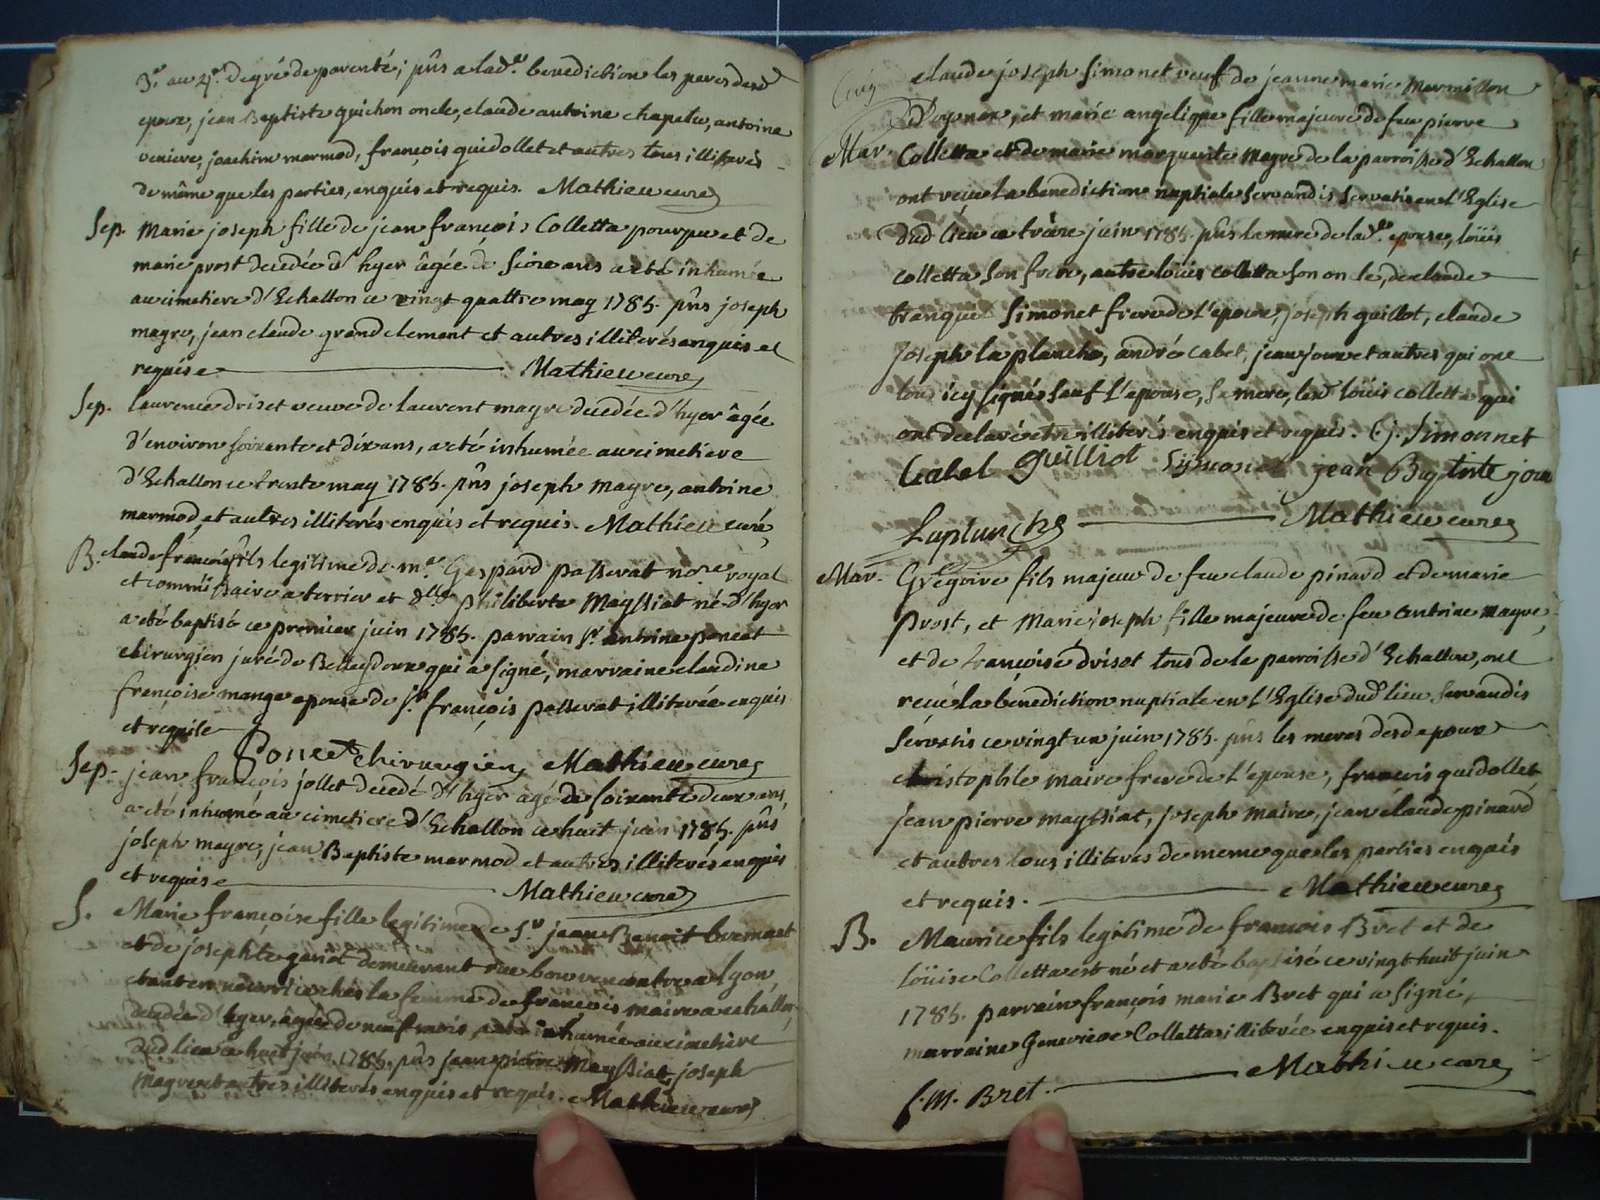 3e au 4e degré de parenté; pñs a lad.te benediction les peres desd
epoux, jean Baptiste guichon oncle, claude antoine chapelu, antoine
veniere, joachim marmod, françois guidollet et autres tous illiterés
de même que les parties, enquis et requis. Mathieu curé
Sep. Marie joseph fille de jean françois Colletta pourpu et de
marie prost decedée d'hyer âgée de seize ans a eté inhumée
au cimetiere d'Echallon ce vingt quattre may 1785. pñs joseph
magre, jean claude grandclement et autres illiterés enquis et
requis Mathieu curé
Sep. laurence driset veuve de laurent magre decedée d'hyer âgée
d'environ soixante et dix ans, a eté inhumée au cimetiere
d'Echallon ce trente may 1785. pñs joseph magre, antoine
marmod, et autres illiterés enquis et requis. Mathieu curé
B. claude françois fils legitime de m.e Gaspard passerat no.re royal
et commissaire a terrier et d.lle philiberte Mayssiat né d'hyer
a eté baptisé ce premier juin 1785. parrain S.r antoine poncet
chirurgien juré de Belleydoux qui a signé, marraine claudine
françoise mange epouse de s.r françois passerat illiterée enquis
et requise
Poncet chirurgien Mathieu curé
Sep. jean françois jollet decedé d'hyer âgé de soixante deux ans
a eté inhumé au cimetiere d'Echallon ce huit juin 1785. pñs
joseph magre, jean Baptiste marmod et autres illiterés enquis
et requis Mathieu curé
S. Marie françoise fille legitime de S.r jean Benoit
et de josephte demeurant rue a lyon
etant en nourrice chés la femme de françois maire a echallon
decedée d'hyer, âgée de neuf mois, a eté inhumée au cimetiere
dud lieu ce huit juin 1785. pñs jean pierre Mayssiat, joseph
magre et autres illiterés enquis et requis. Mathieu curé
claude joseph simonet veuf de jeanne marie Marmillon
d'oyonax, et marie angelique fille majeure de feu pierre
Mar. Colletta et de marie marguerite Magre de la parroisse d'Echallon
ont reçu la benediction nuptiale servandis servatis en l'Eglise
dud lieu ce treize juin 1785. pñs la mere de lad.te epouse, loüis
colletta son frere, autre loüis colletta son oncle, de claude
françois simonet frere de l'epoux, joseph guillot, claude
joseph la planche, andré cabet, jean jour et autres qui ont
tous icy signés sauf l'epouse, sa mere, led loüis colletta qui
ont declaré etre illiterés enquis et requis. C.j. Simonnet
Cabet guilliot Symonet jean Baptiste jour
Laplanche Mathieu curé
Mar. Gregoire fils majeur de feu claude pinard et de marie
prost, et Marie joseph fille majeure de feu antoine magre,
et de françoise driset tous de la parroisse d'Echallon, ont
reçu la bénediction nuptiale en l'Eglise dud lieu servandis
servatis ce vingt un juin 1785. pñs les meres desd epoux
christophle maire frere de l'epouse, françois guidollet
jean pierre mayssiat, joseph maire, jean claude pinard
et autres tous illiteres de meme que les parties enquis
et requis. Mathieu curé
B. Maurice fils legitime de françois Bret et de
loüise Colletta est né et a eté baptisé ce vingt huit juin
1785. parrain françois marie Bret qui a signé,
marraine Genevieve Colletta, illiterée enquis et requis.
Mathieu curé
f. M. Bret.